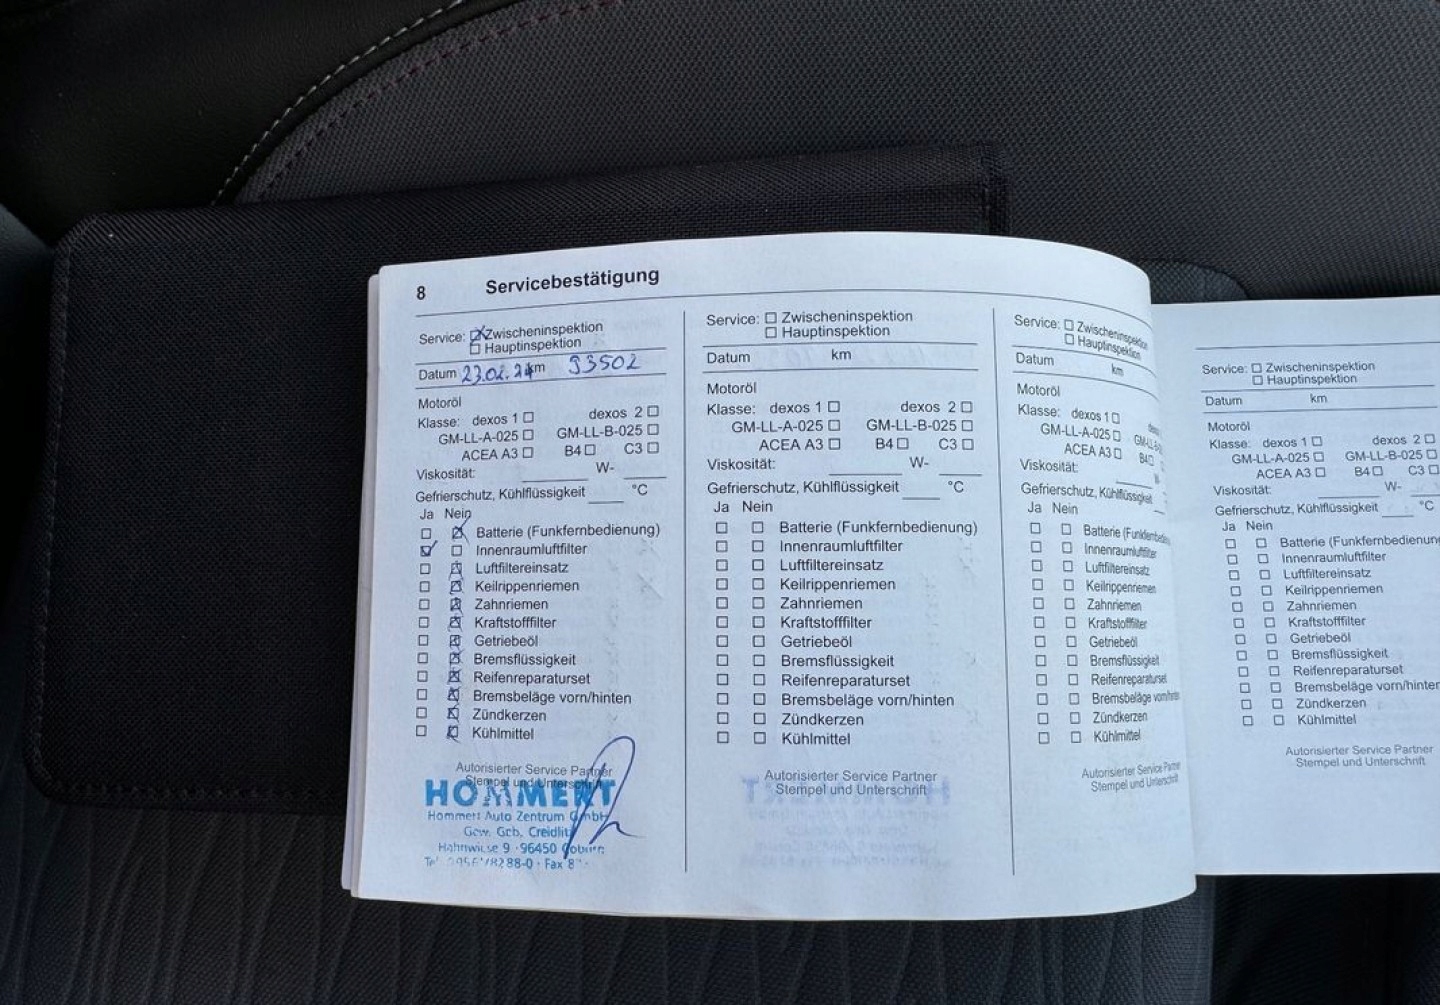 8 Servicebestätigung
Service: Zwischeninspektion
Hauptinspektion
Datum 23.02.24 km 93502
Motoröl
Klasse: dexos 1 dexos 2
GM-LL-A-025 GM-LL-B-025
ACEA A3 B4 C3
Viskosität: W-
Gefrierschutz, Kühlflüssigkeit °C
Ja Nein
Batterie (Funkfernbedienung)
Innenraumluftfilter
Luftfiltereinsatz
Keilrippenriemen
Zahnriemen
Kraftstofffilter
Getriebeöl
Bremsflüssigkeit
Reifenreparaturset
Bremsbeläge vorn/hinten
Zündkerzen
Kühlmittel
Autorisierter Service Partner
Stempel und Unterschrift
HOMMERT
Hommert Auto Zentrum GmbH
Gew. Geb. Creidlitz
96450 Coburg
88-0 · Fax
Service: Zwischeninspektion
Hauptinspektion
Datum km
Motoröl
Klasse: dexos 1 dexos 2
GM-LL-A-025 GM-LL-B-025
ACEA A3 B4 C3
Viskosität: W-
Gefrierschutz, Kühlflüssigkeit °C
Ja Nein
Batterie (Funkfernbedienung)
Innenraumluftfilter
Luftfiltereinsatz
Keilrippenriemen
Zahnriemen
Kraftstofffilter
Getriebeöl
Bremsflüssigkeit
Reifenreparaturset
Bremsbeläge vorn/hinten
Zündkerzen
Kühlmittel
Autorisierter Service Partner
Stempel und Unterschrift
Service: Zwischeninspektion
Hauptinspektion
Datum km
Motoröl
Klasse: dexos 1
GM-LL-A-025
ACEA A3 B4
Viskosität:
Gefrierschutz, Kühlflüssigkeit
Ja Nein
Batterie (Funkfernbedie
Innenraumluftfilter
Luftfiltereinsatz
Keilrippenriemen
Zahnriemen
Kraftstofffilter
Getriebeöl
Bremsflüssigkeit
Reifenreparaturset
Bremsbeläge vorn/hinten
Zündkerzen
Kühlmittel
Autorisierter Service Partner
Stempel und Unterschrift
Service: Zwischeninspektion
Hauptinspektion
Datum km
Motoröl
Klasse: dexos 1 dexos 2
GM-LL-A-025 GM-LL-B-025
ACEA A3 B4 C3
Viskosität: W-
Gefrierschutz, Kühlflüssigkeit °C
Ja Nein
Batterie (Funkfernbedienung
Innenraumluftfilter
Luftfiltereinsatz
Keilrippenriemen
Zahnriemen
Kraftstofffilter
Getriebeöl
Bremsflüssigkeit
Reifenreparaturset
Bremsbeläge vorn/hinten
Zündkerzen
Kühlmittel
Autorisierter Service Partner
Stempel und Unterschrift